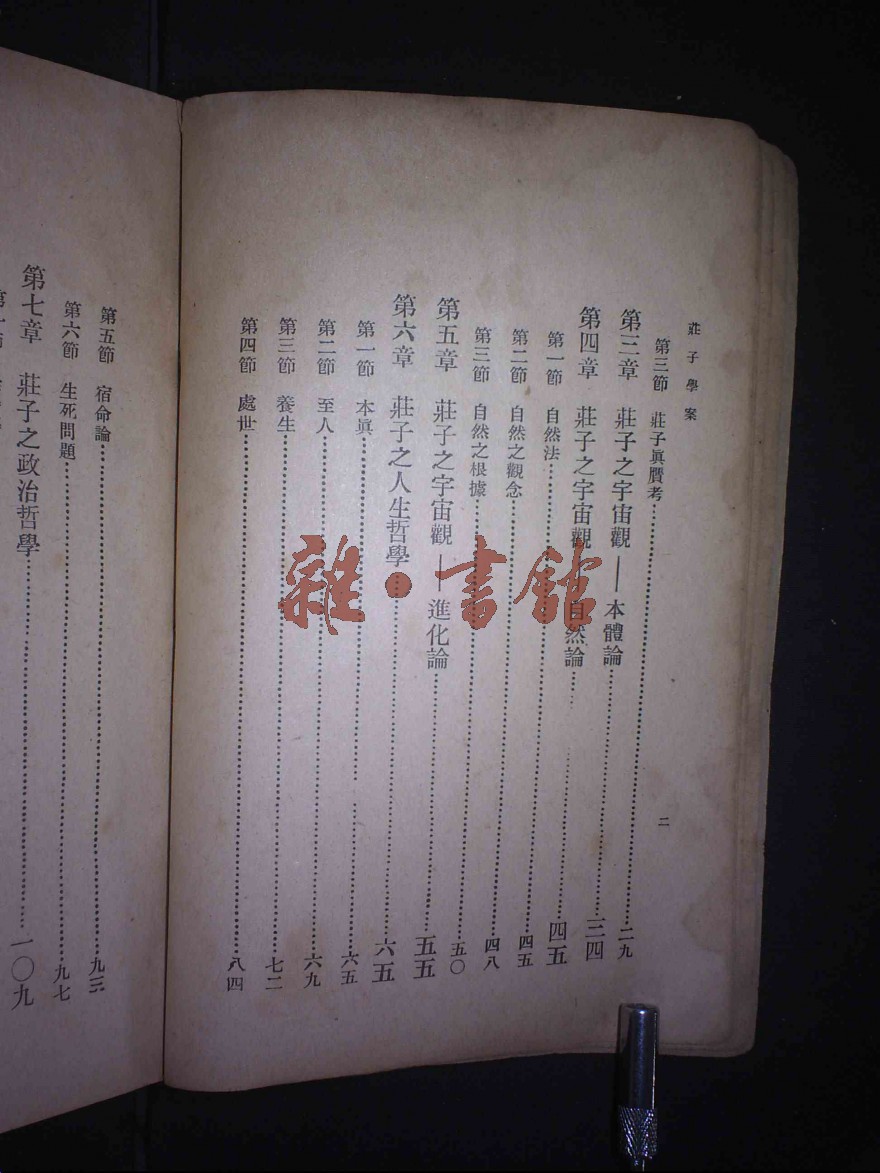 莊子學案
二
第三節 莊子眞贋考……二九
第三章 莊子之宇宙觀——本體論……三四
第四章 莊子之宇宙觀——自然論……四五
第一節 自然法……四五
第二節 自然之觀念……四八
第三節 自然之根據……五〇
第五章 莊子之宇宙觀——進化論……五五
第六章 莊子之人生哲學……六五
第一節 本眞……六五
第二節 至人……六九
第三節 養生……七二
第四節 處世……八四
第五節 宿命論……九三
第六節 生死問題……九七
第七章 莊子之政治哲學……一〇九
雜·書館